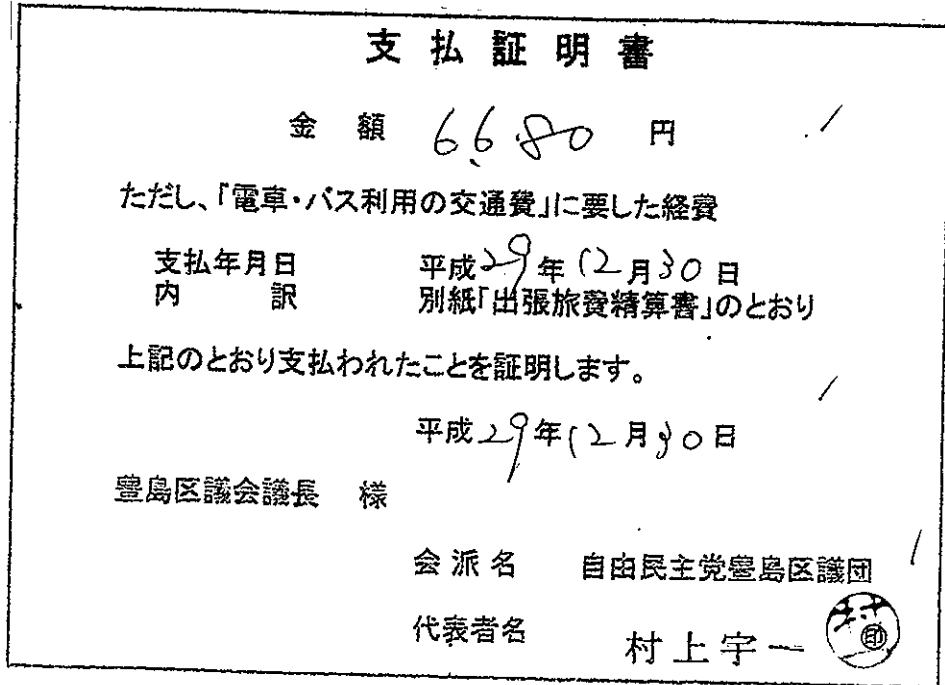 支払証明書
金額 6,680 円
ただし、「電車・バス利用の交通費」に要した経費
支払年月日 平成29年12月30日
内訳 別紙「出張旅費精算書」のとおり
上記のとおり支払われたことを証明します。
平成29年12月30日
豊島区議会議長 様
会派名 自由民主党豊島区議団
代表者名 村上宇一 印